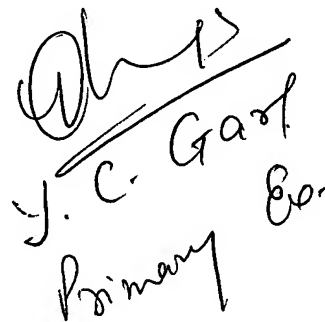 J. C. Garg
Primary Ex.